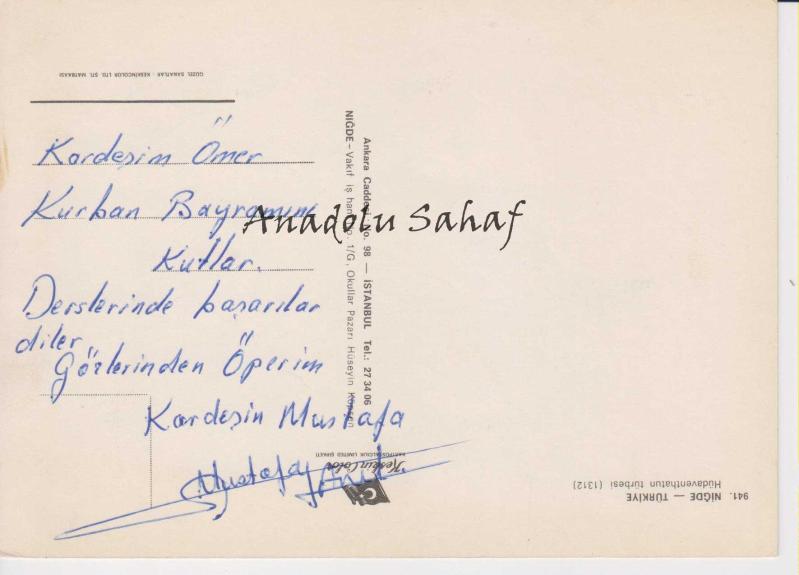 GÜZEL SANATLAR - KESKİNCOLOR LTD. ŞTİ. MATBAASI
Kardeşim Ömer
Kurban Bayramını
Kutlar.
Derslerinde başarılar
diler
Gözlerinden Öperim
Kardeşin Mustafa
Mustafa
Anadolu Sahaf
Ankara Caddesi No. 98 — İSTANBUL Tel.: 27 34 06
NİĞDE – Vakıf iş hanı No. 1/G, Okullar Pazarı Hüseyin
Keskin Color
KARTPOSTALCILIK LIMITED ŞİRKETİ
941. NİĞDE — TÜRKİYE
Hüdaventhatun türbesi (1312)